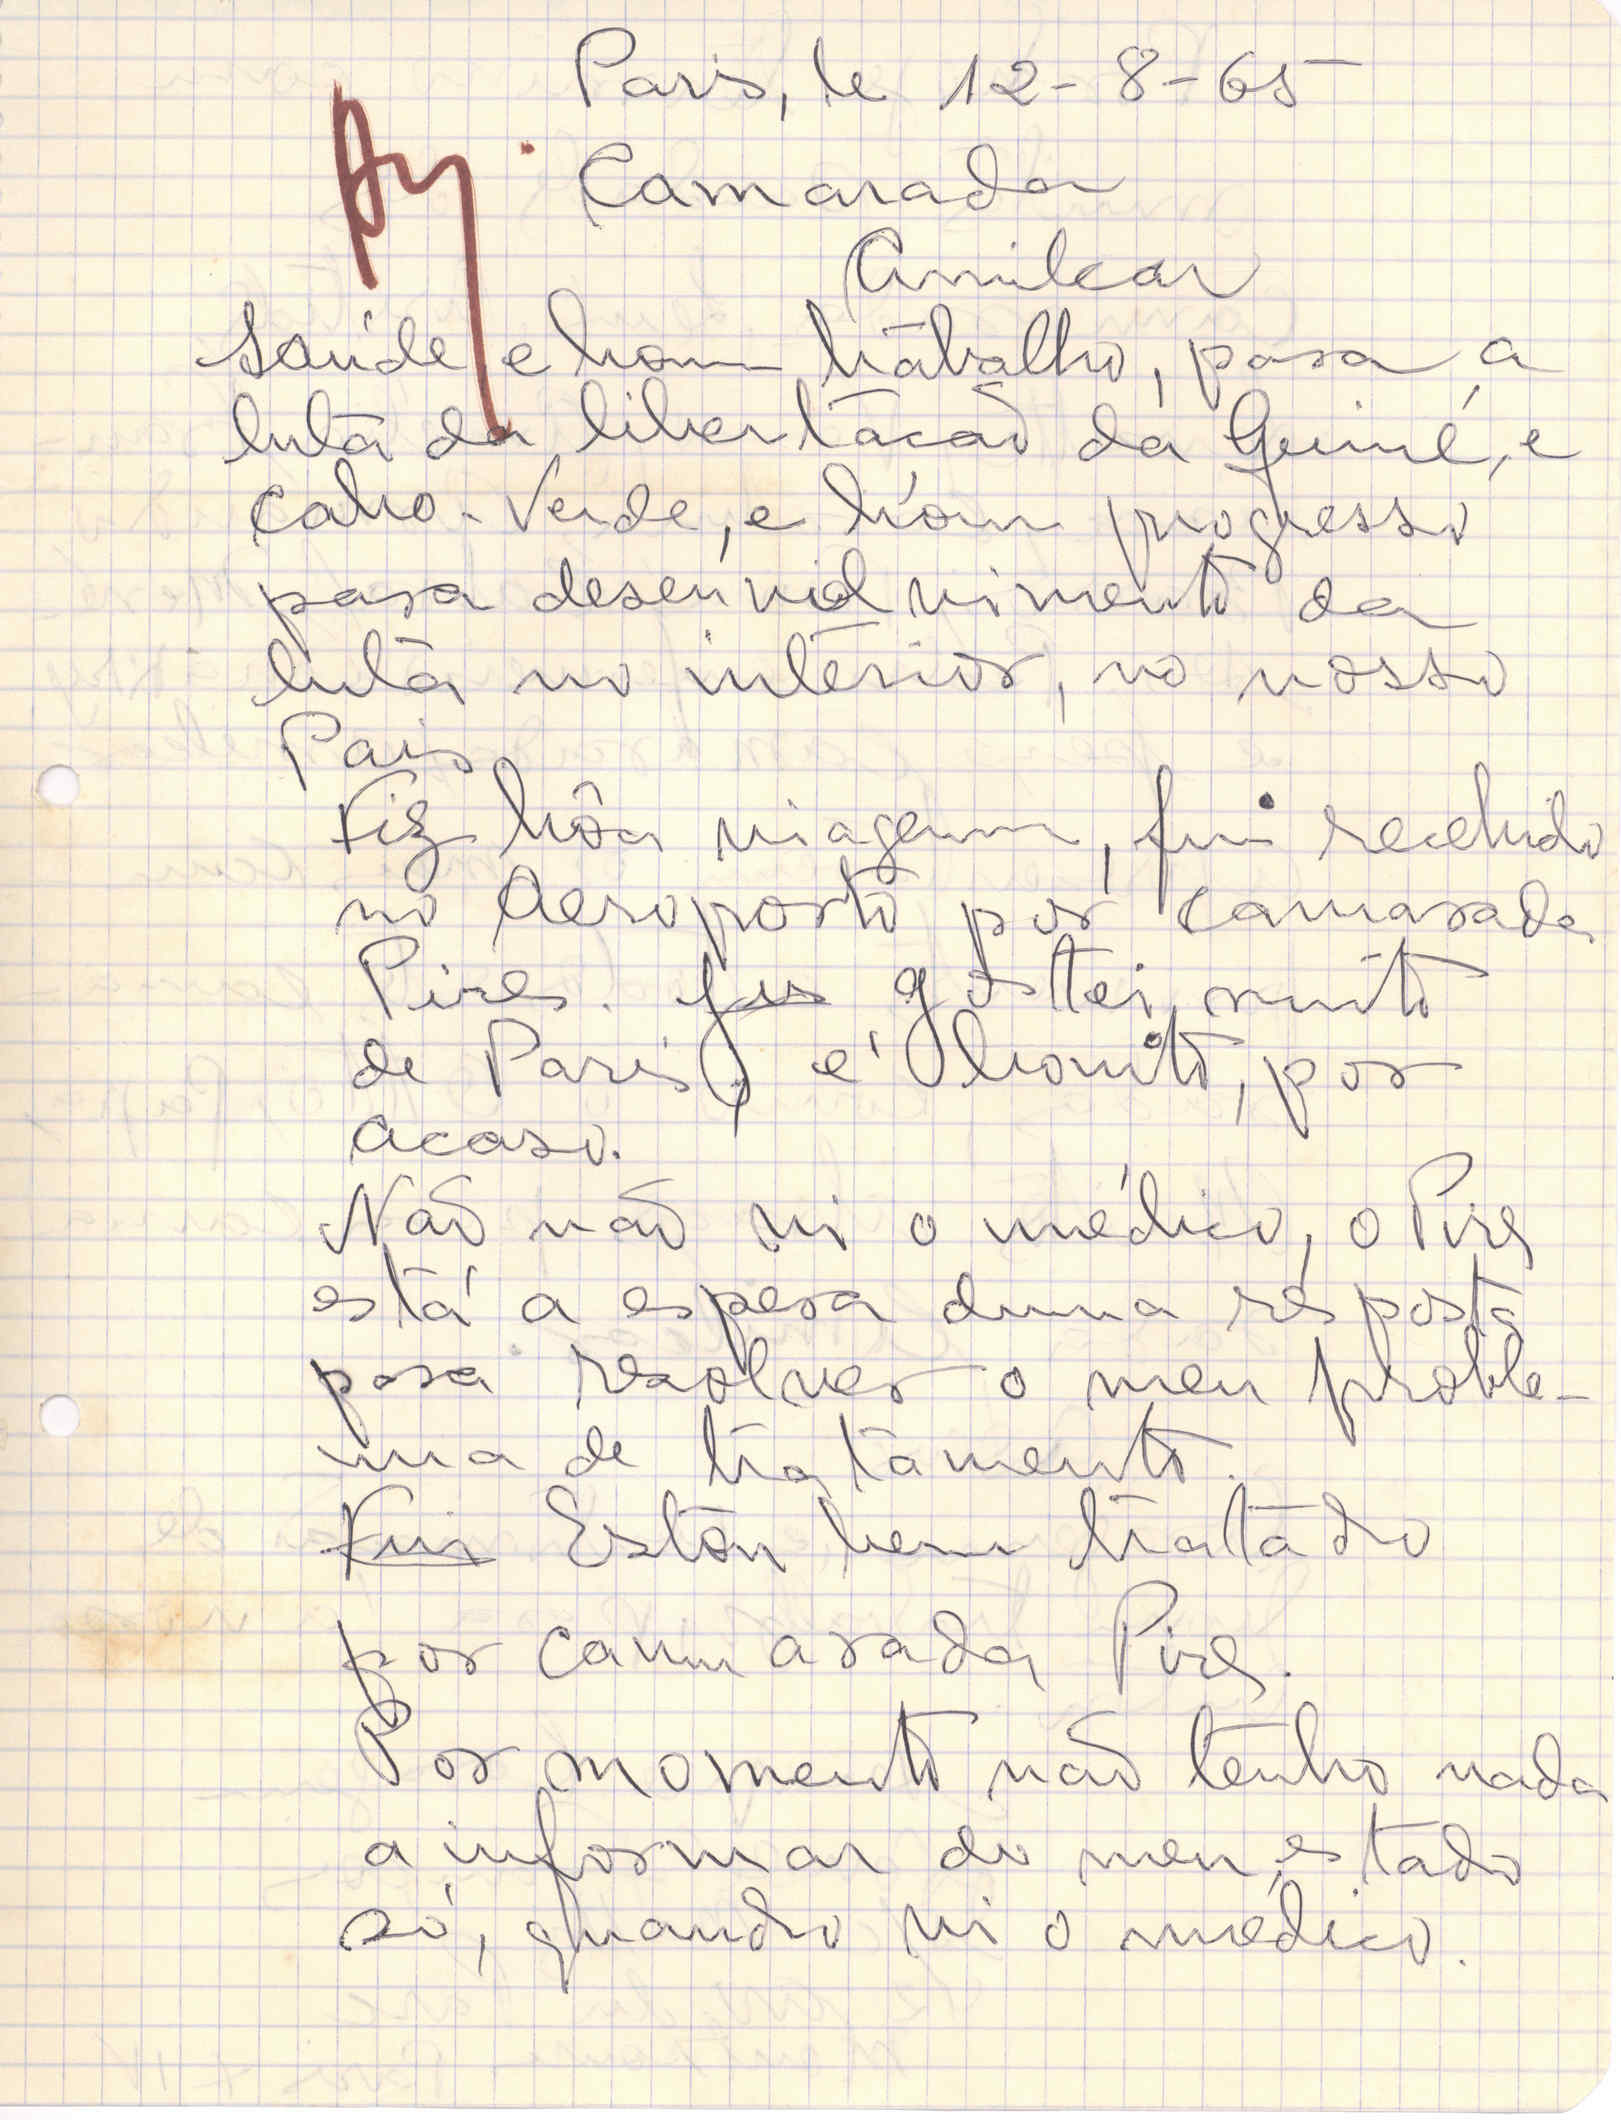 Paris, le 12-8-65
Camarada
Amilcar
Saúde e bom trabalho, para a
luta da libertação da Guiné, e
Cabo-Verde, e bom progresso
para desenvolvimento da
luta no interior, no nosso
Pais
Fiz bôa viagem, fui recebido
no Aeroporto por camarada
Pires. gostei muito
de Paris, é bonito, por
acaso.
Não não vi o médico, o Pires
está a espera duma resposta
para resolver o meu proble-
ma de tratamento.
Fui Estou bem tratado
por camarada Pires.
Por momento não tenho nada
a informar do meu estado
só, quando vi o médico.